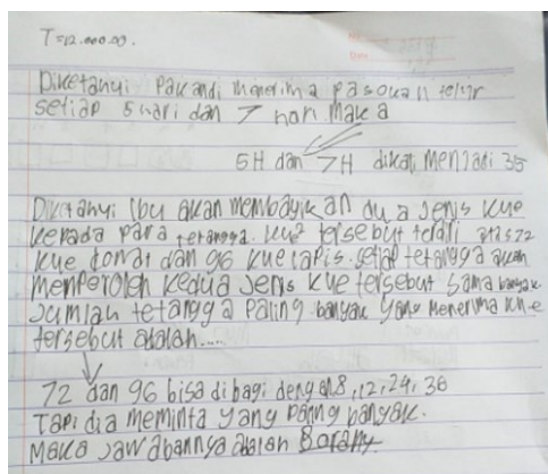 T=12.000.00.
Diketahui Pak andi menerima pasokan telur
setiap 5 hari dan 7 hari maka
5H dan 7H dikali menjadi 35
Diketahui Ibu akan membagikan dua jenis kue
kepada para tetangga. kue tersebut terdiri atas 72
kue donat dan 96 kue lapis. setiap tetangga akan
memperoleh kedua jenis kue tersebut sama banyak.
Jumlah tetangga paling banyak yang menerima kue
tersebut adalah.....
72 dan 96 bisa dibagi dengan 8, 12, 24, 36
Tapi dia meminta yang paling banyak.
Maka jawabannya adalah